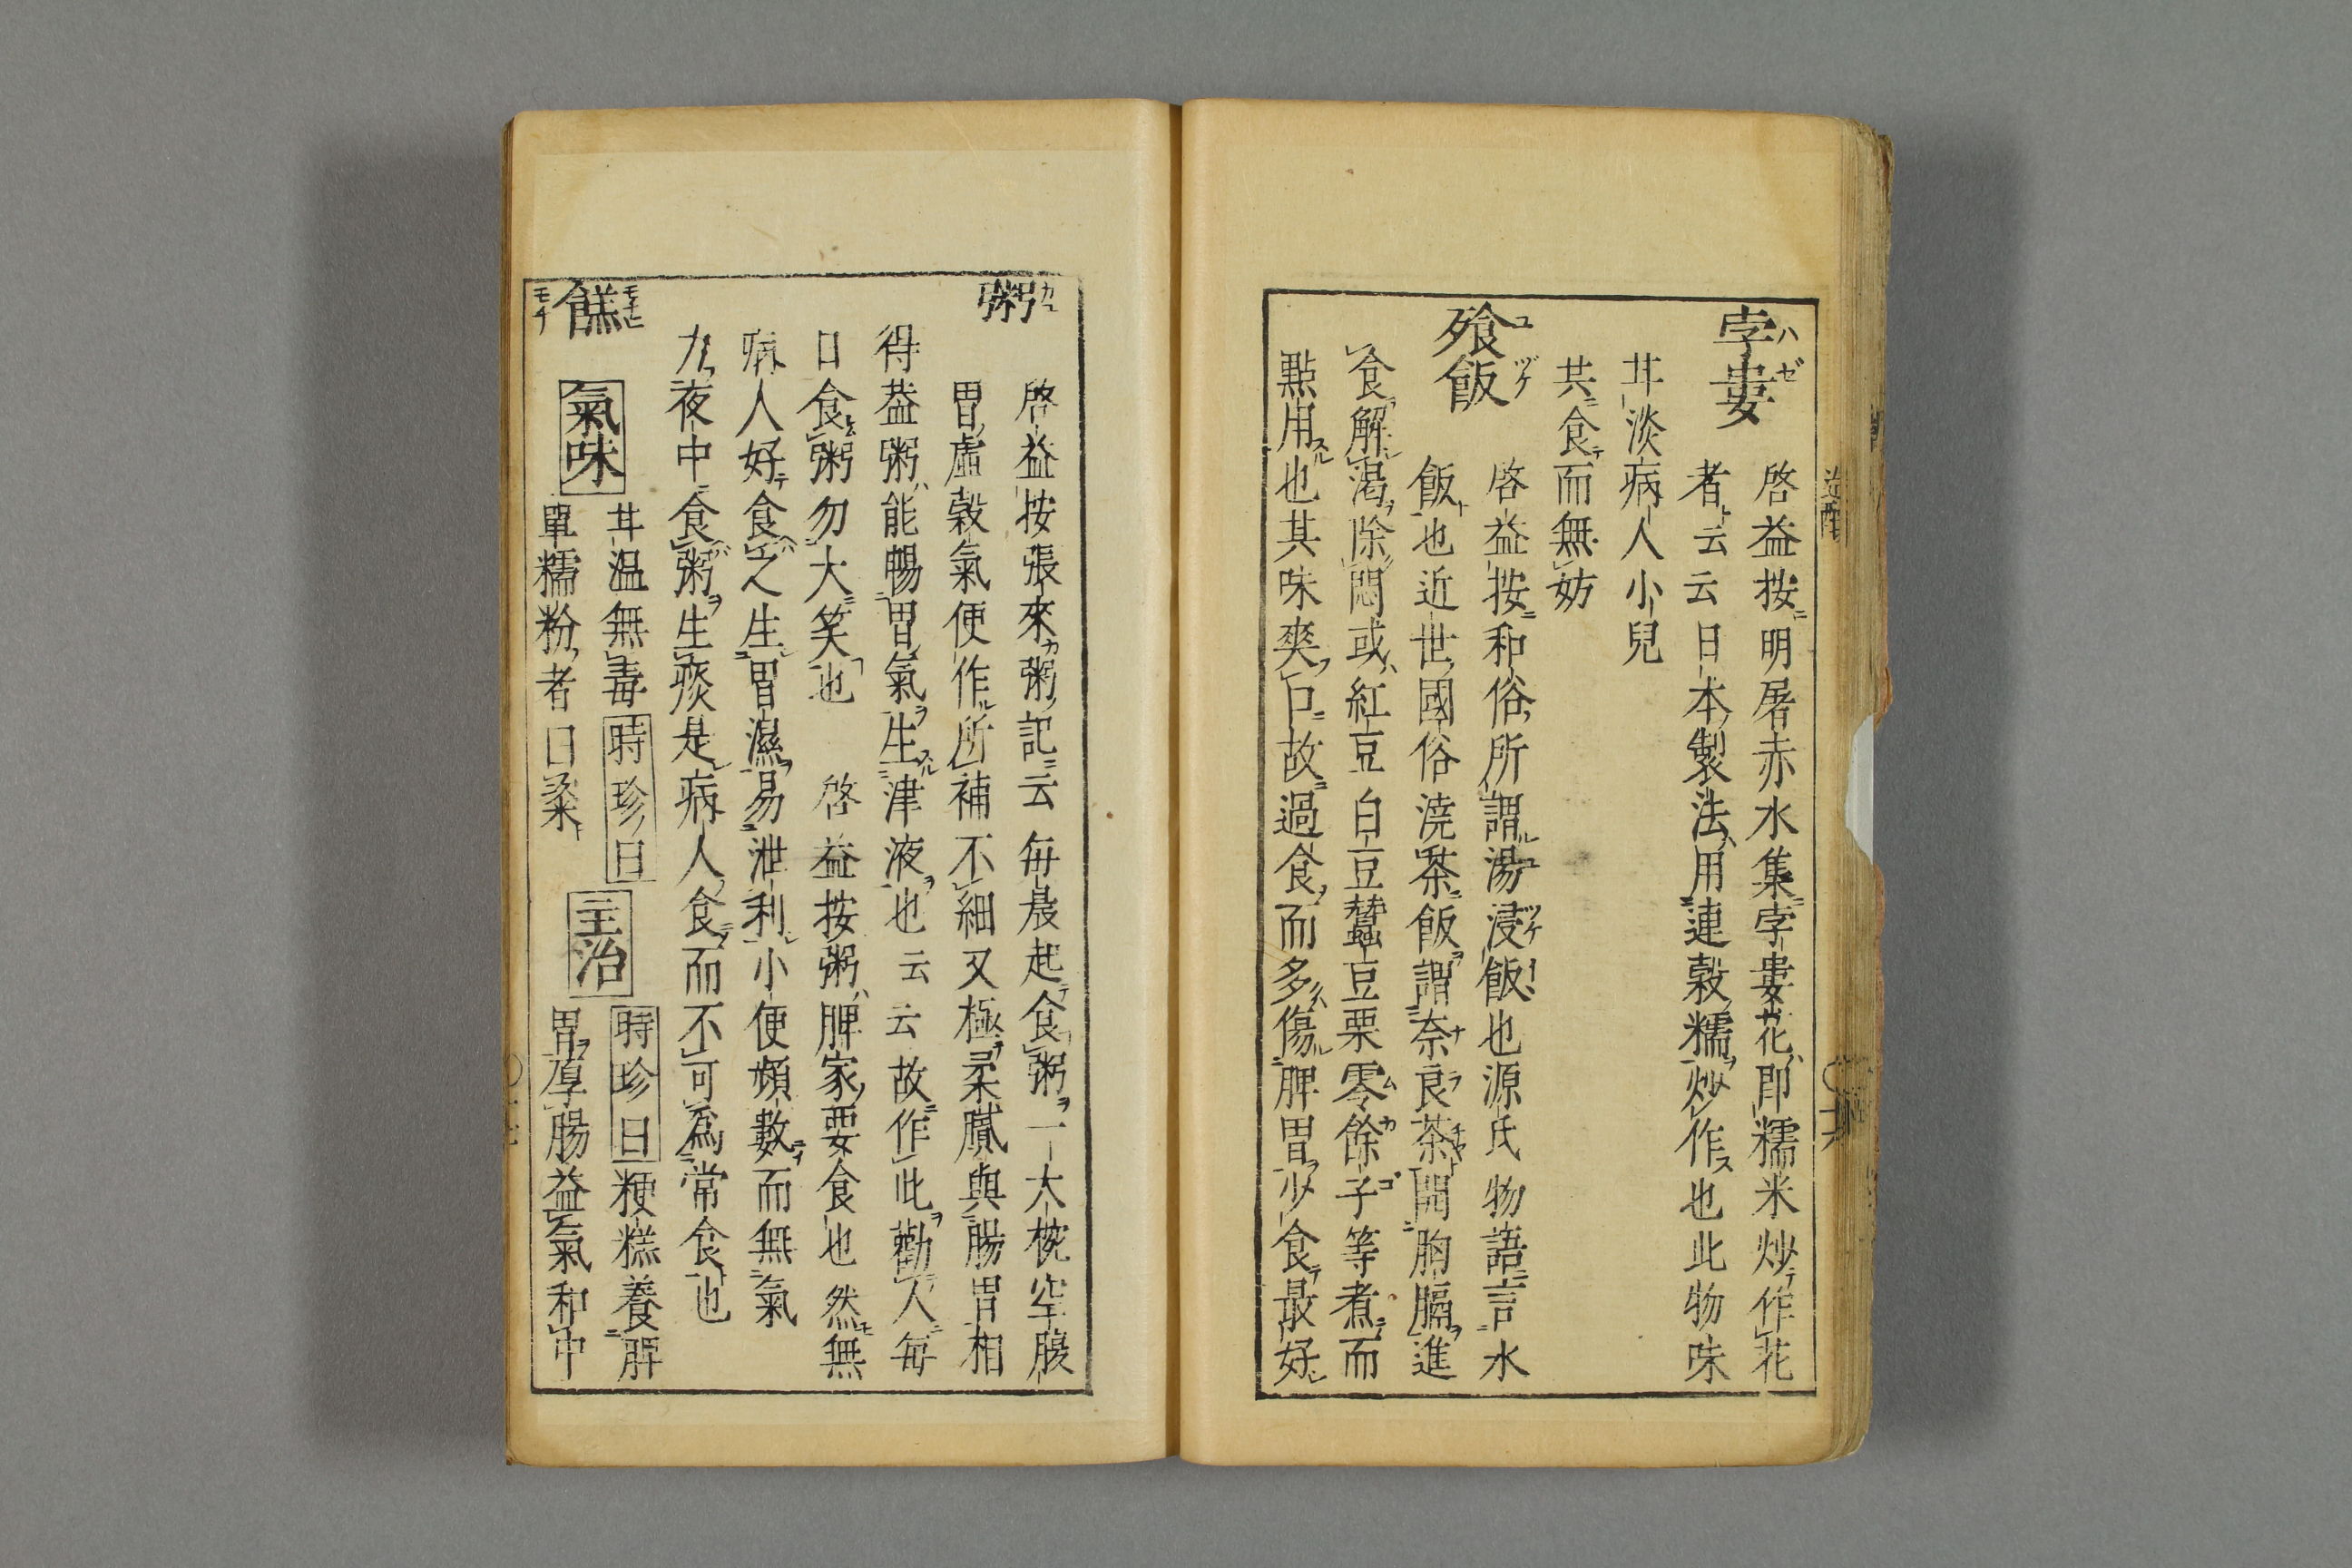 孛婁
啓益按明屠赤水集孛婁花即糯米炒作花
者云云日本製法用連穀糯炒作也此物味
甘淡病人小兒
共食而無妨
飱飯
啓益按和俗所謂湯浸飯也源氏物語言水
飯也近世國俗澆茶飯謂奈良茶開胸膈進
食解渇除悶或紅豆白豆蠶豆栗零餘子等煮而
㸃用也其味爽口故過食而多傷脾胃少食最好
粥
啓益按張來粥記云毎晨起食粥一大椀空腹
胃虛穀氣便作所補不細又極柔膩與腸胃相
得益粥能暢胃氣生津液也云云故作此勸人毎
日食粥勿大笑也 啓益按粥脾家要食也然無
病人好食之生胃濕易泄利小便頻數而無氣
力夜中食粥生痰是病人食而不可為常食也
餻
氣味 甘温無毒 時珍曰 主治 時珍曰 粳糕養脾
單糯粉者曰粢 胃厚腸益氣和中